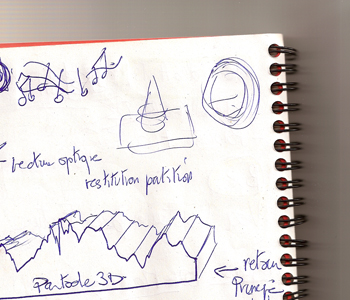 lecture optique
restitution partition
Partode 3D
retour